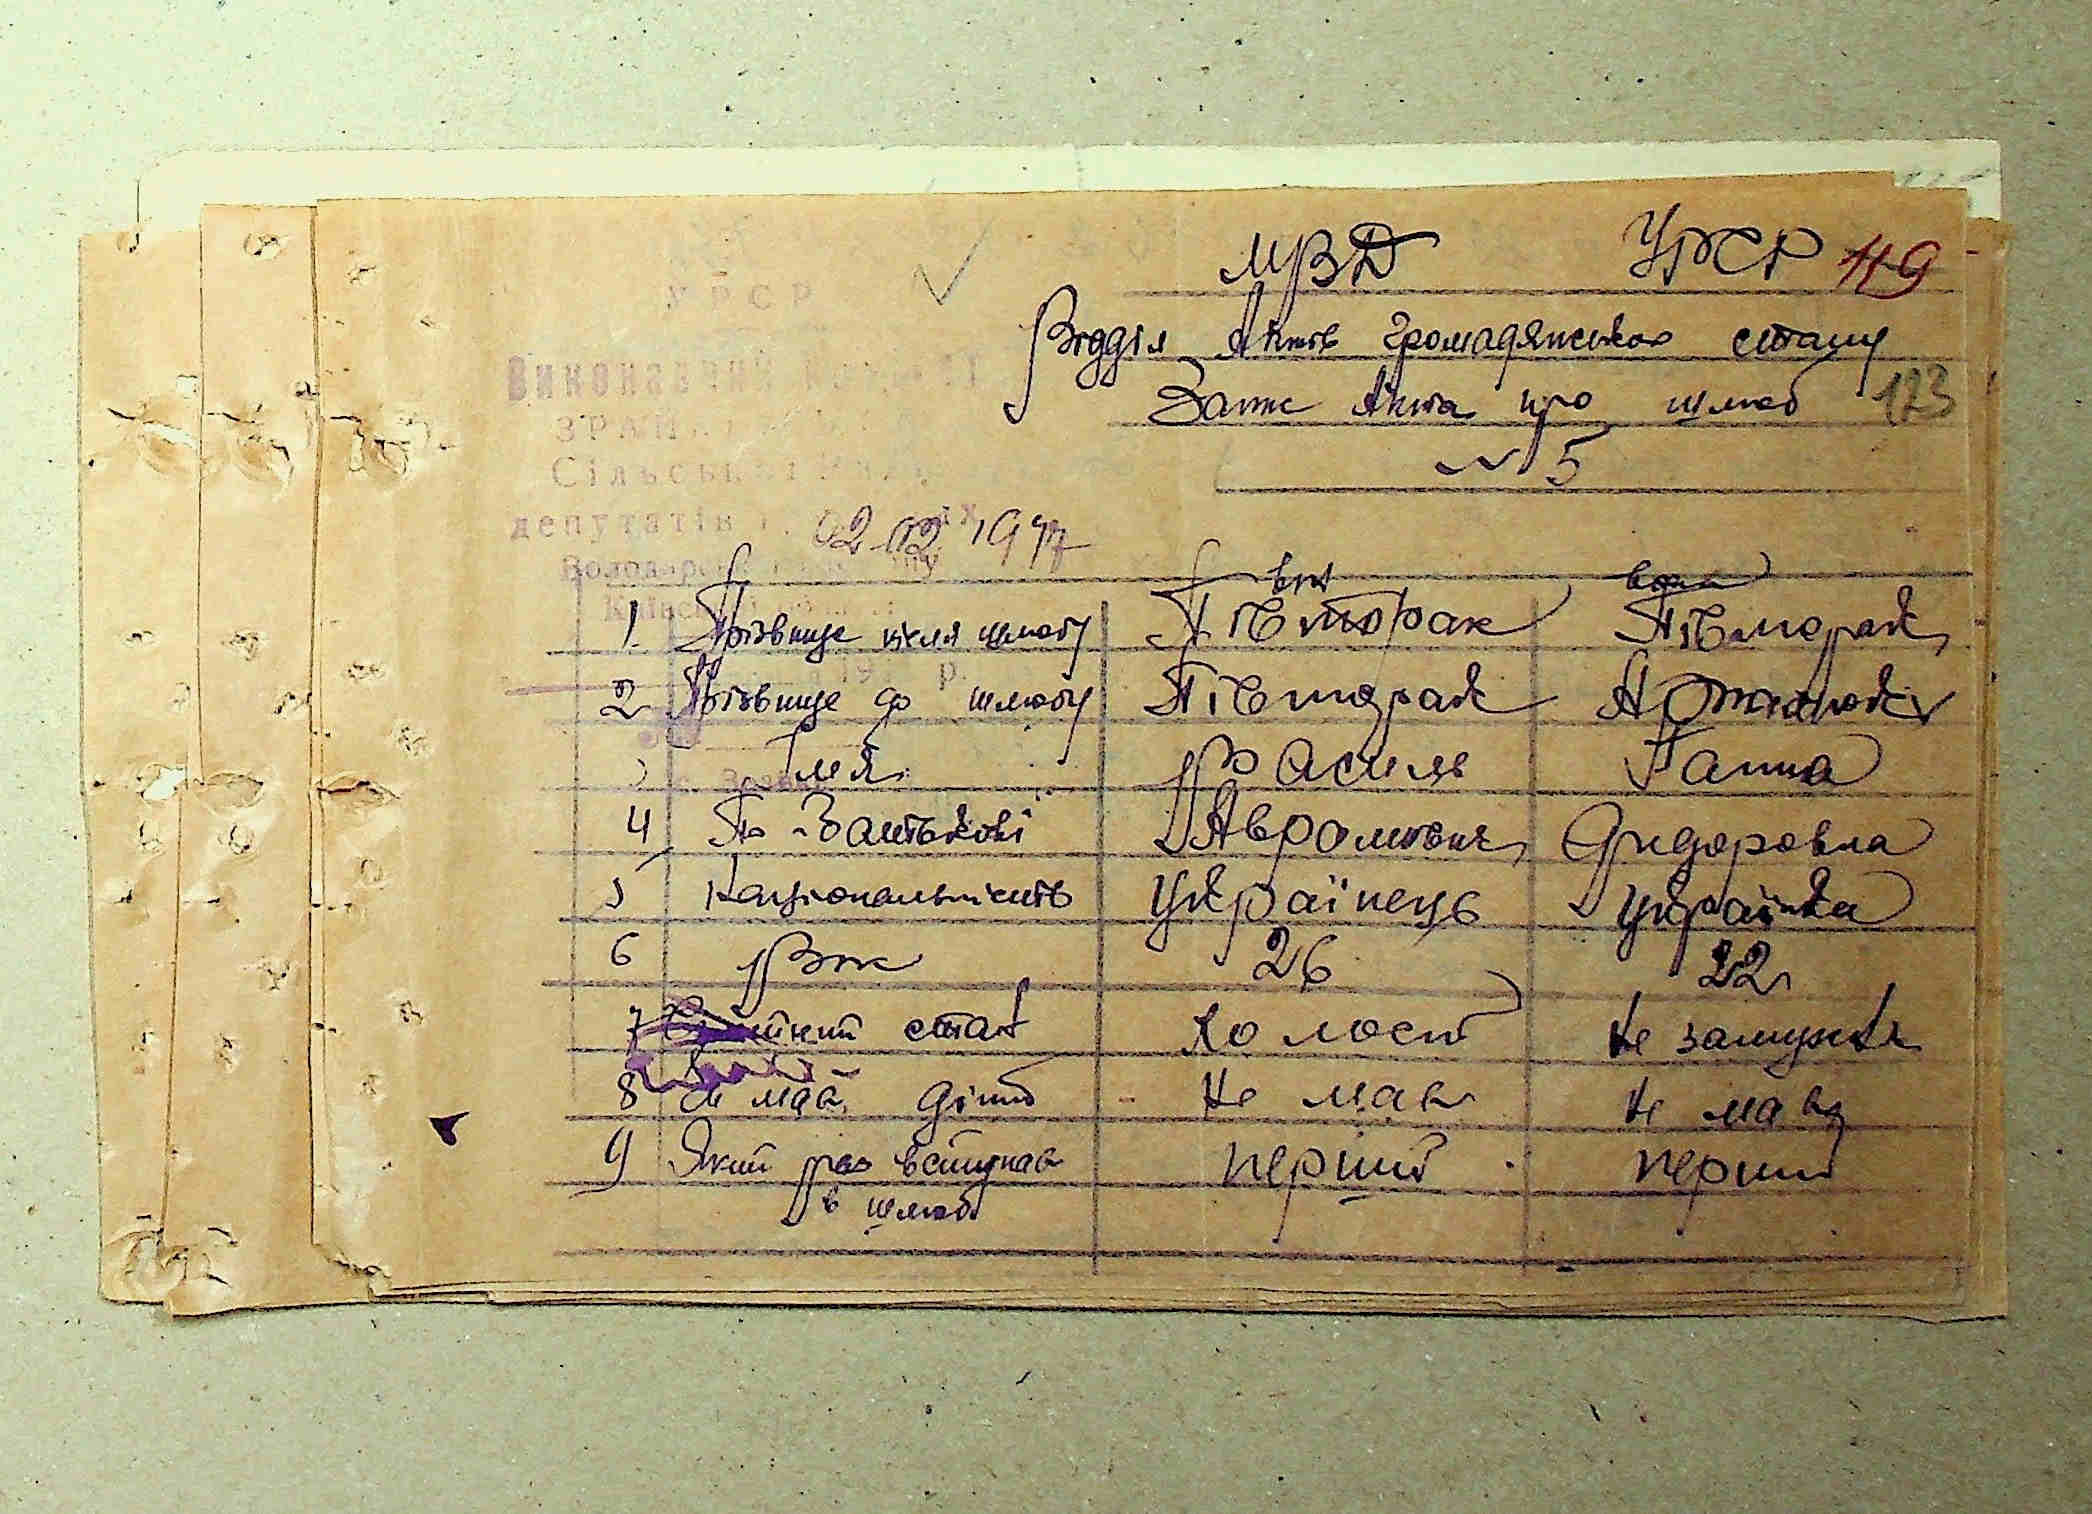 МВД УРСР 119
Відділ Актів громадянськаго стану
Запис Акта про шлюб 123
№ 5
УРСР
Виконавчий
Сільської
депутатів
02 12 1947
він вона
1. Прізвище після шлюбу Півторак Півторак
2 Прізвище до шлюбу Півторак
3 Імя Василь Ганна
4 По Батькові Аврамович Сидоровна
5 Національність Українець Українка
6 Вік 26 22
7 стан холост не замужня
8 Чи мав дітей не мав не мала
9 Який раз вступав перший перший
в шлюб